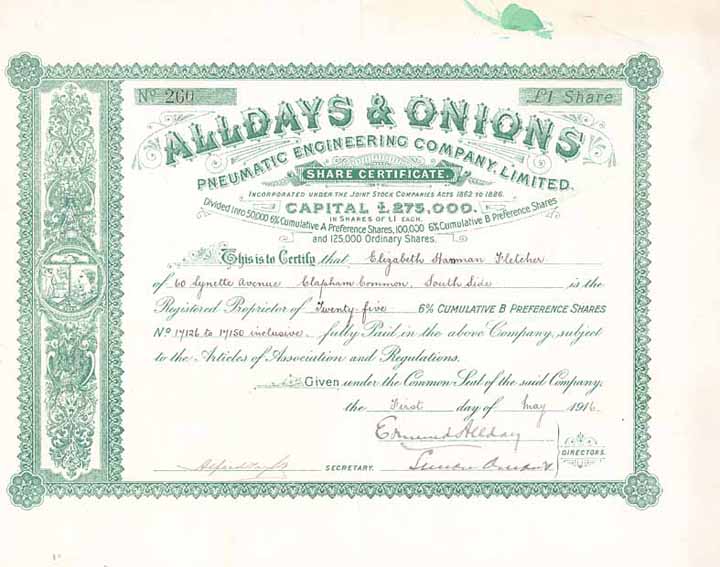 No 260
£1 Share
ALLDAYS & ONIONS
PNEUMATIC ENGINEERING COMPANY, LIMITED.
SHARE CERTIFICATE.
INCORPORATED UNDER THE JOINT STOCK COMPANIES ACTS 1862 TO 1886.
CAPITAL £275,000.
IN SHARES OF £1 EACH.
Divided into 50,000 6% Cumulative A Preference Shares, 100,000 6% Cumulative B Preference Shares
and 125,000 Ordinary Shares.
This is to Certify that Elizabeth Fletcher
of 60 Lynette Avenue Clapham Common, South Side is the
Registered Proprietor of Twenty-five 6% CUMULATIVE B PREFERENCE SHARES
No 17126 to 17150 inclusive, fully Paid in the above Company, subject
to the Articles of Association and Regulations.
Given under the Common Seal of the said Company,
the First day of May 1916.
Edmund Allday
DIRECTORS.
SECRETARY.